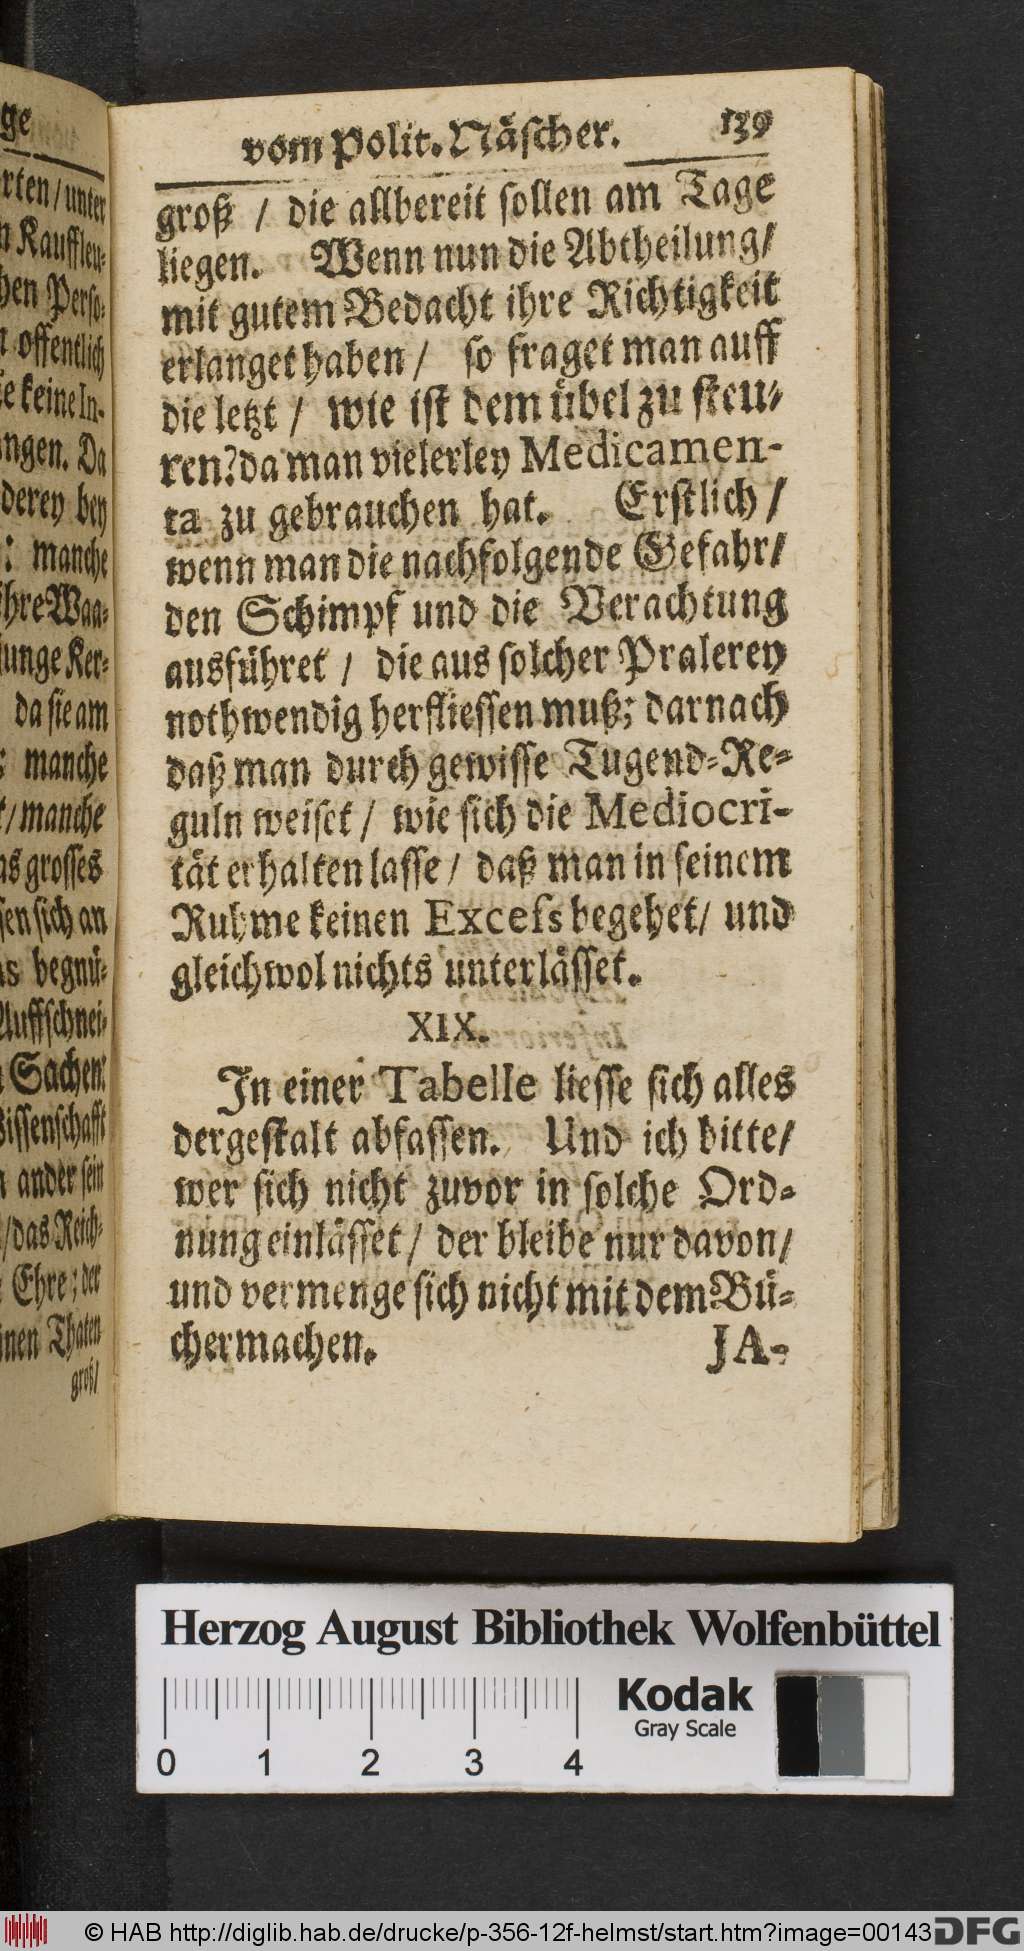 ge
rten/unter
n Kauffleu-
hen Perso-
n offentlich
ie keine In-
ngen. Da
derey bey
: manche
ihre Waa-
junge Ker-
da sie am
; manche
t/manche
as grosses
sen sich an
as begnü-
Auffschnei-
n Sachen:
Wissenschafft
n ander sein
/das Reich-
Ehre; der
inen Thaten
groß/
vom Polit. Näscher. 139
groß / die allbereit sollen am Tage
liegen. Wenn nun die Abtheilung/
mit gutem Bedacht ihre Richtigkeit
erlanget haben / so fraget man auff
die letzt / wie ist dem übel zu steu-
ren? da man vielerley Medicamen-
ta zu gebrauchen hat. Erstlich /
wenn man die nachfolgende Gefahr/
den Schimpf und die Verachtung
ausführet / die aus solcher Pralerey
nothwendig herfliessen muß; darnach
daß man durch gewisse Tugend-Re-
guln weiset / wie sich die Mediocri-
tät erhalten lasse / daß man in seinem
Ruhme keinen Excess begehet/ und
gleichwol nichts unterlässet.
XIX.
In einer Tabelle liesse sich alles
dergestalt abfassen. Und ich bitte/
wer sich nicht zuvor in solche Ord-
nung einlässet / der bleibe nur davon/
und vermenge sich nicht mit dem Bü-
chermachen. JA-
Herzog August Bibliothek Wolfenbüttel
Kodak
Gray Scale
0 1 2 3 4
© HAB http://diglib.hab.de/drucke/p-356-12f-helmst/start.htm?image=00143
DFG